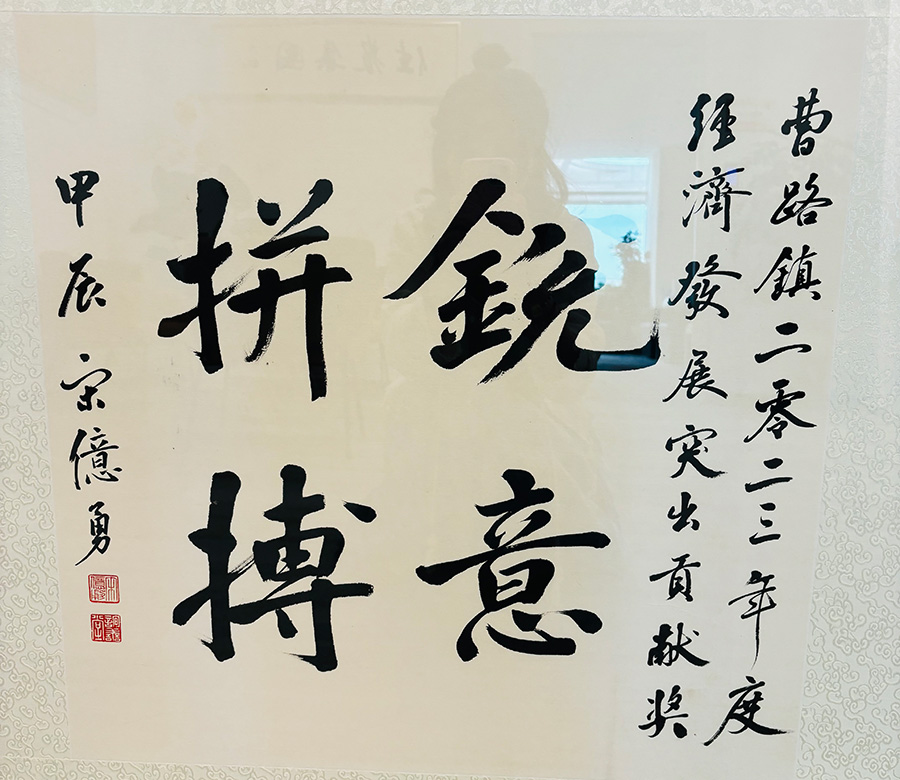 曹路鎮二零二三年度
經濟發展突出貢献奖
銳意
拼搏
甲辰 宋億勇